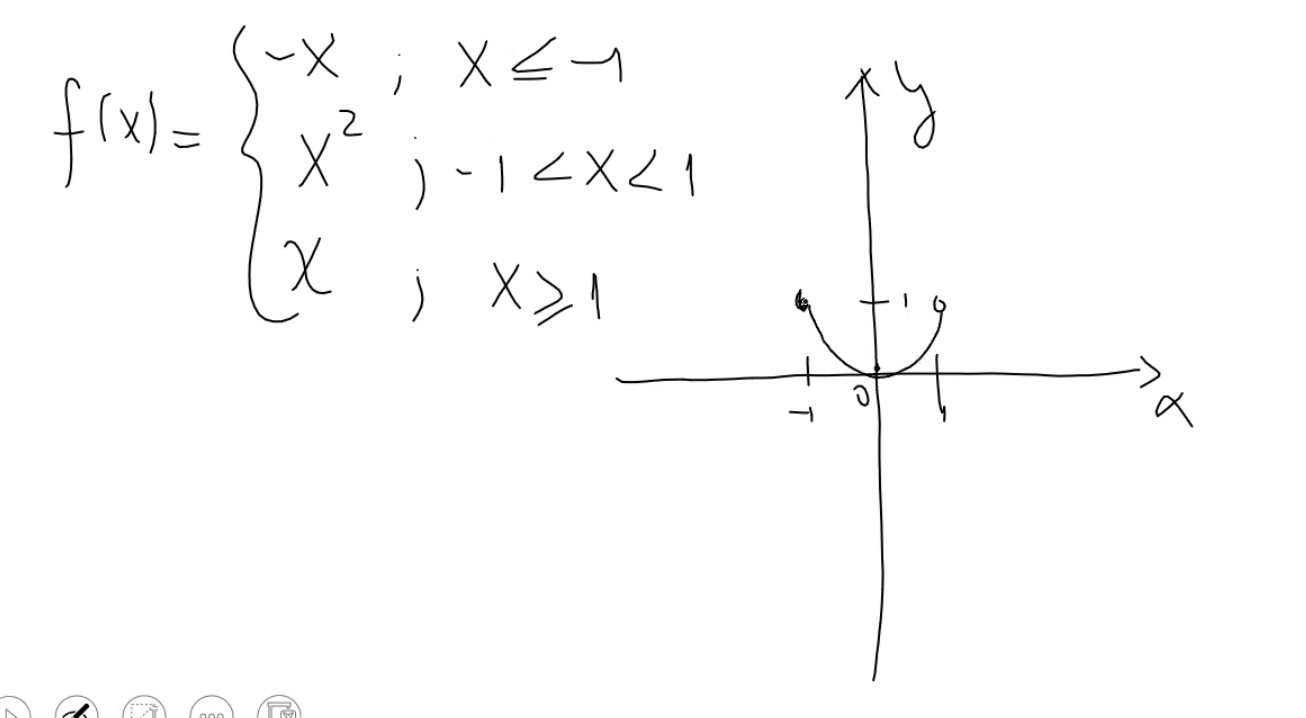 f(x) = { -x ; x ≤ -1
x² ; -1 < x < 1
x ; x ≥ 1
y
1
-1 0 1
x